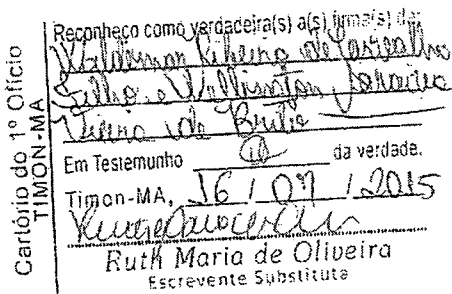 Cartório do 1º Ofício
TIMON-MA
Reconheço como verdadeira(s) a(s) firma(s) de:
Waldemar Ribeiro de Carvalho
Filho e Wellington
Vieira de Brito
Em Testemunho da verdade.
Timon-MA, 16 / 07 / 2015
Ruth Maria de Oliveira
Escrevente Substituta